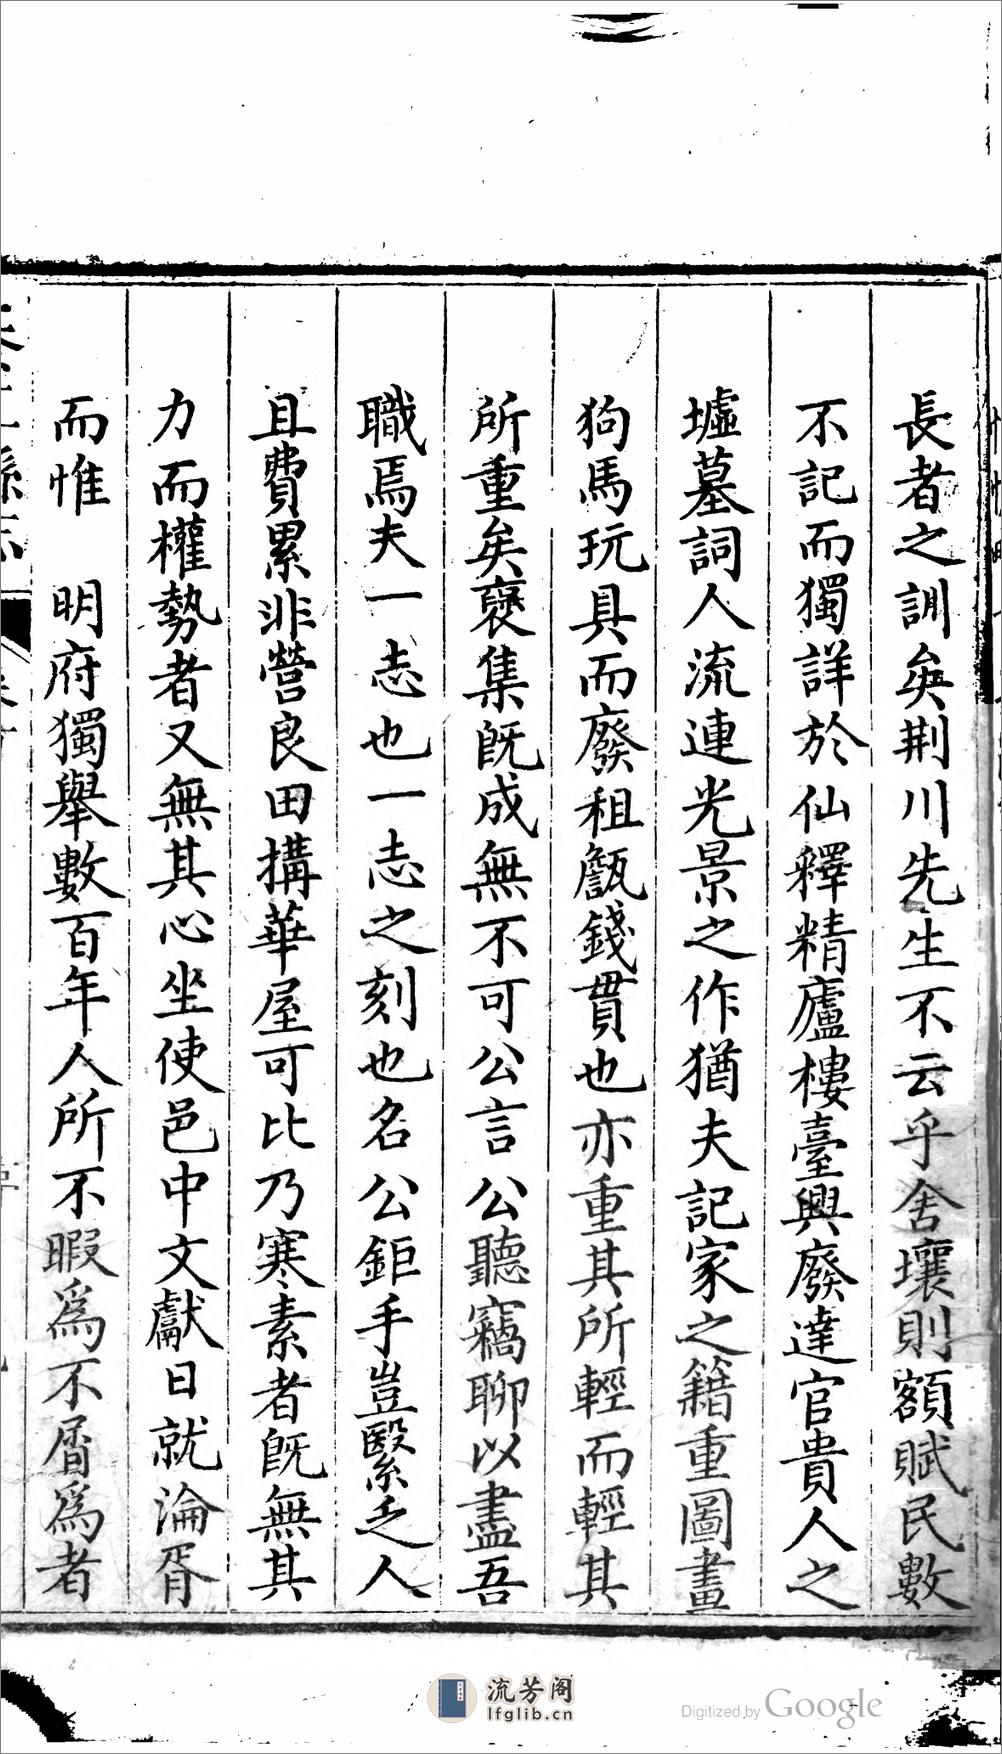 長者之訓矣荆川先生不云乎舍壤則額賦民數
不記而獨詳於仙釋精廬樓臺興廢達官貴人之
墟墓詞人流連光景之作猶夫記家之籍重圖畫
狗馬玩具而廢租甔錢貫也亦重其所輕而輕其
所重矣裒集既成無不可公言公聽竊聊以盡吾
職焉夫一志也一志之刻也名公鉅手豈繄乏人
且費累非營良田搆華屋可比乃寒素者既無其
力而權勢者又無其心坐使邑中文獻日就淪胥
而惟　明府獨舉數百年人所不暇爲不屑爲者
流芳阁
lfglib.cn
Digitized by Google